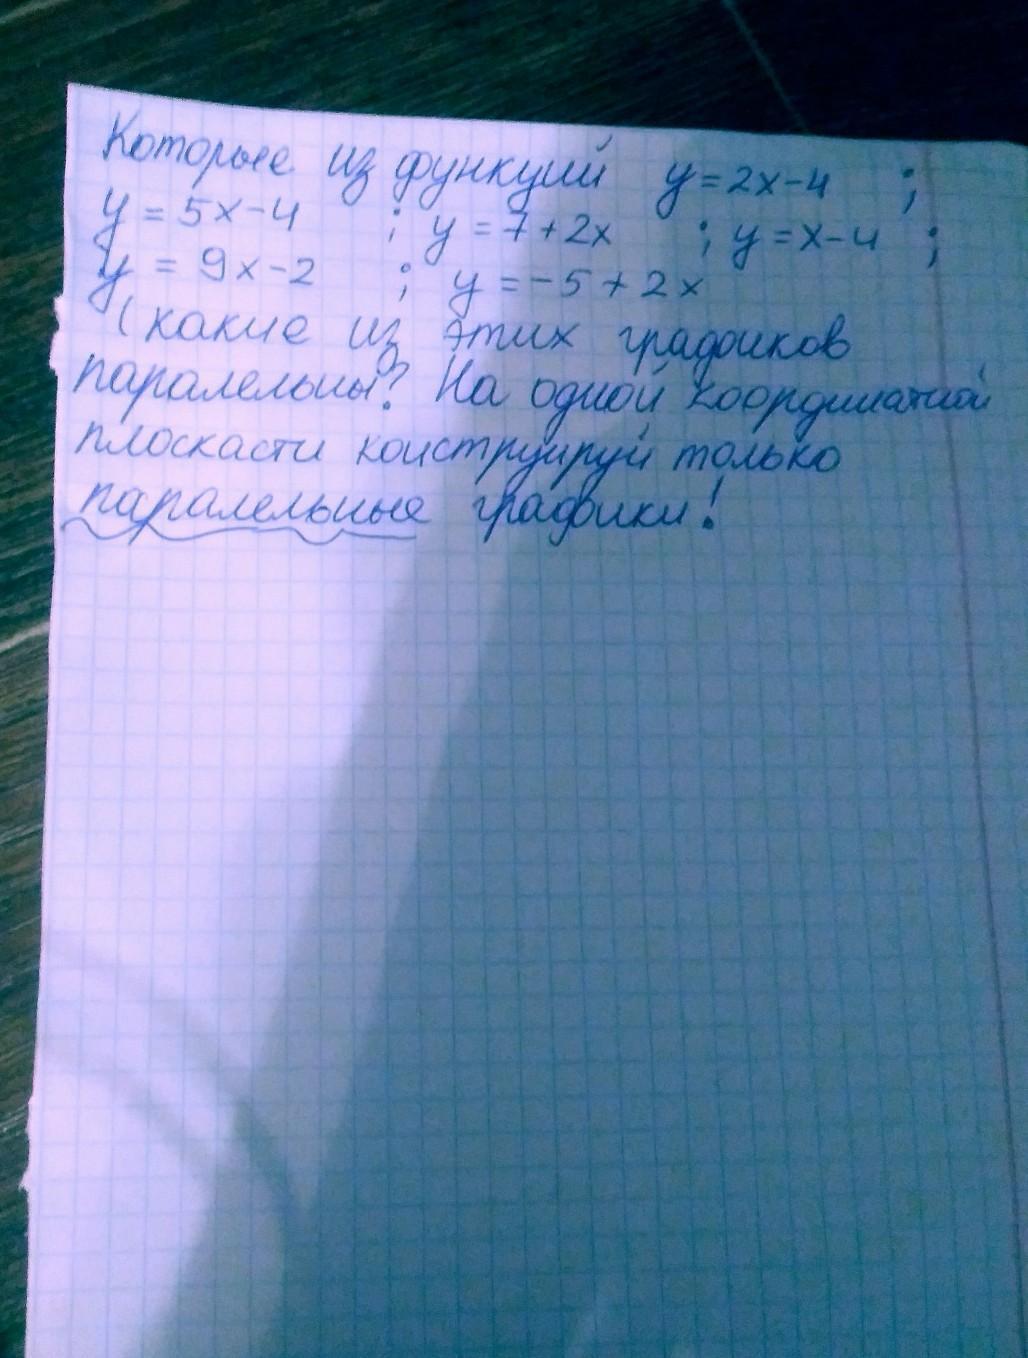 Которые из функций y=2x-4 ;
y = 5x-4 ; y = 7+2x ; y = x-4 ;
y = 9x-2 ; y = -5 + 2x
(какие из этих графиков
паралельны? На одной координатной
плоскасти конструируй только
паралельные графики!